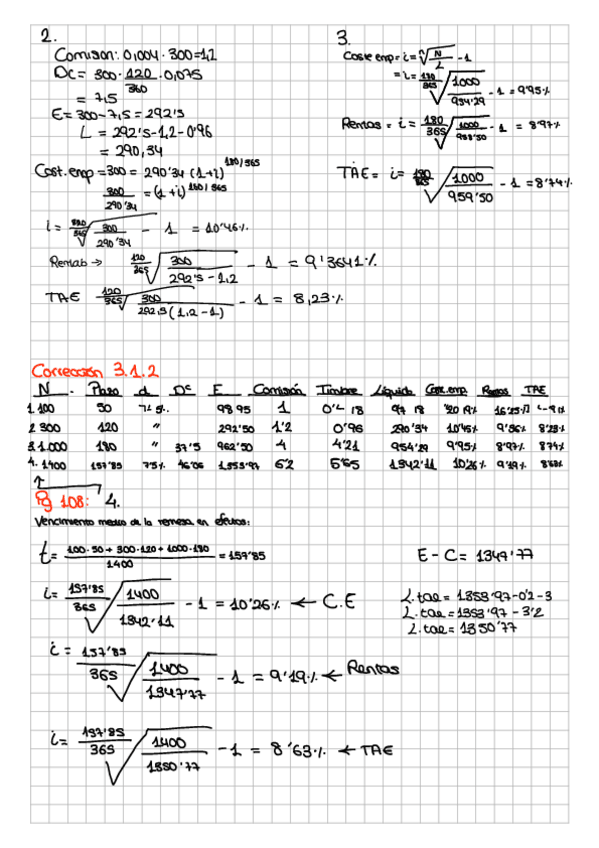 2.
Comision: 0,004 · 300 = 1,2
Dc = 300 · 120/360 · 0,075
= 7,5
E = 300 - 7,5 = 292'5
L = 292'5 - 1,2 - 0'96
= 290,34
Cost. emp = 300 = 290'34 (1+i)^180/365
300/290'34 = (1+i)^180/365
300/290'34 - 1 = 10'46%
Rentab → 120/365 √ 300/292'5 - 1,2 - 1 = 9'3641%
TAE 120/365 √ 300/292,5 (1,2 - 1) - 1 = 8,23%
3.
Coste emp = i = n√ N/L - 1
= i = 180/365 √ 1000/954'29 - 1 = 9'95%
Rentas = i = 180/365 √ 1000/958'50 - 1 = 8'97%
TAE = i = 180/365 √ 1000/959'50 - 1 = 8'74%
Corrección 3.1.2
N Plazo d Dc E Comisión Timbre Líquido Cost.emp Rentas TAE
1. 100 50 98'95 1
2. 300 120 " 292'50 1'2 0'96 290'34 10'45% 9'36% 8'23%
3. 1.000 180 " 37'5 962'50 4 4'21 954'29 9'95% 8'97% 8'74%
4. 1400 157'85 7'5% 46'06 1.353'97 6'2 5'65 1342'11 10'26% 9'19%
Pg 108: 4.
Vencimiento medio de la remesa en efectos:
t = 100·50 + 300·120 + 1000·180/1400 = 157'85
E - C = 1347'77
i = 157'85/365 √ 1400/1342'11 - 1 = 10'26% ← C.E
L.tae = 1353'97 - 0'2 - 3
L.tae = 1353'97 - 3'2
L.tae = 1350'77
i = 157'85/365 √ 1400/1347'77 - 1 = 9'19% ← Rentas
i = 157'85/365 √ 1400/1350'77 - 1 = 8'63% ← TAE